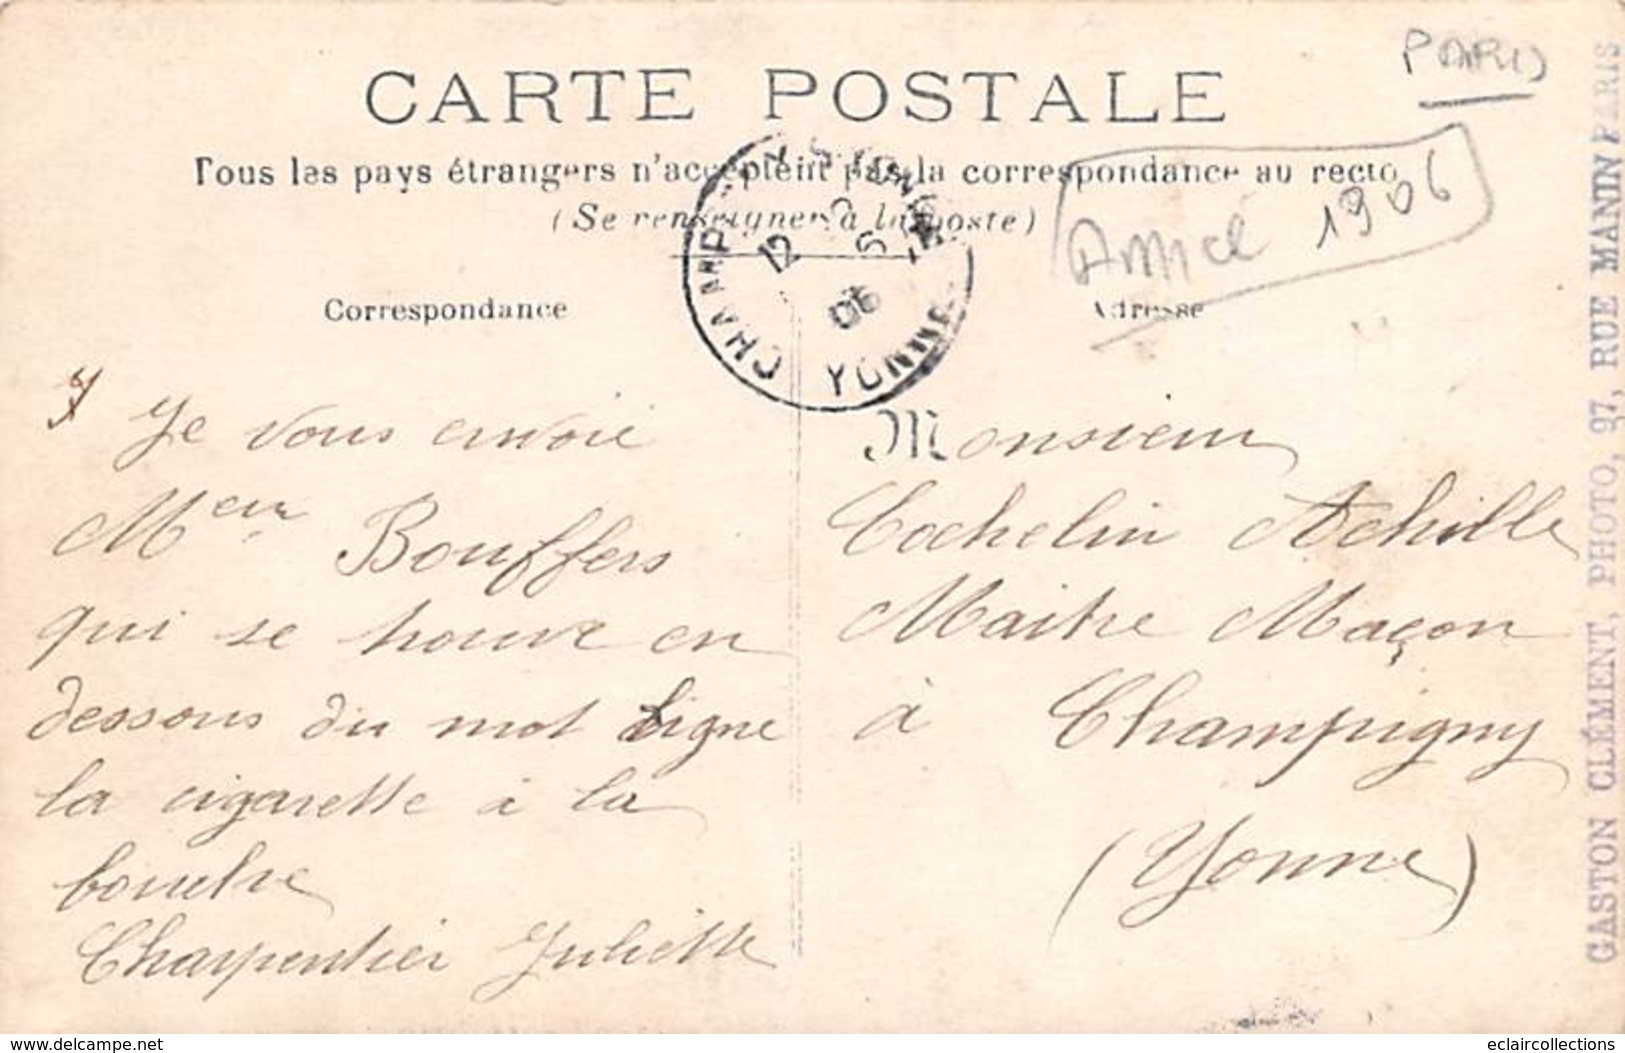 PARIS
CARTE POSTALE
Tous les pays étrangers n'acceptent pas la correspondance au recto
(Se renseigner à la poste)
Année 1906
CHAMPIGNY S YONNE
12
6
06
YONNE
Correspondance
Adresse
Je vous envoie
Meur Bouffers
qui se trouve en
dessous du mot ligne
la cigarette à la
bouche
Charpentier Juliette
Monsieur
Cochelin Achille
Maître Maçon
à Champigny
(Yonne)
GASTON CLÉMENT, PHOTO, 97, RUE MANIN PARIS
www.delcampe.net
eclaircollections